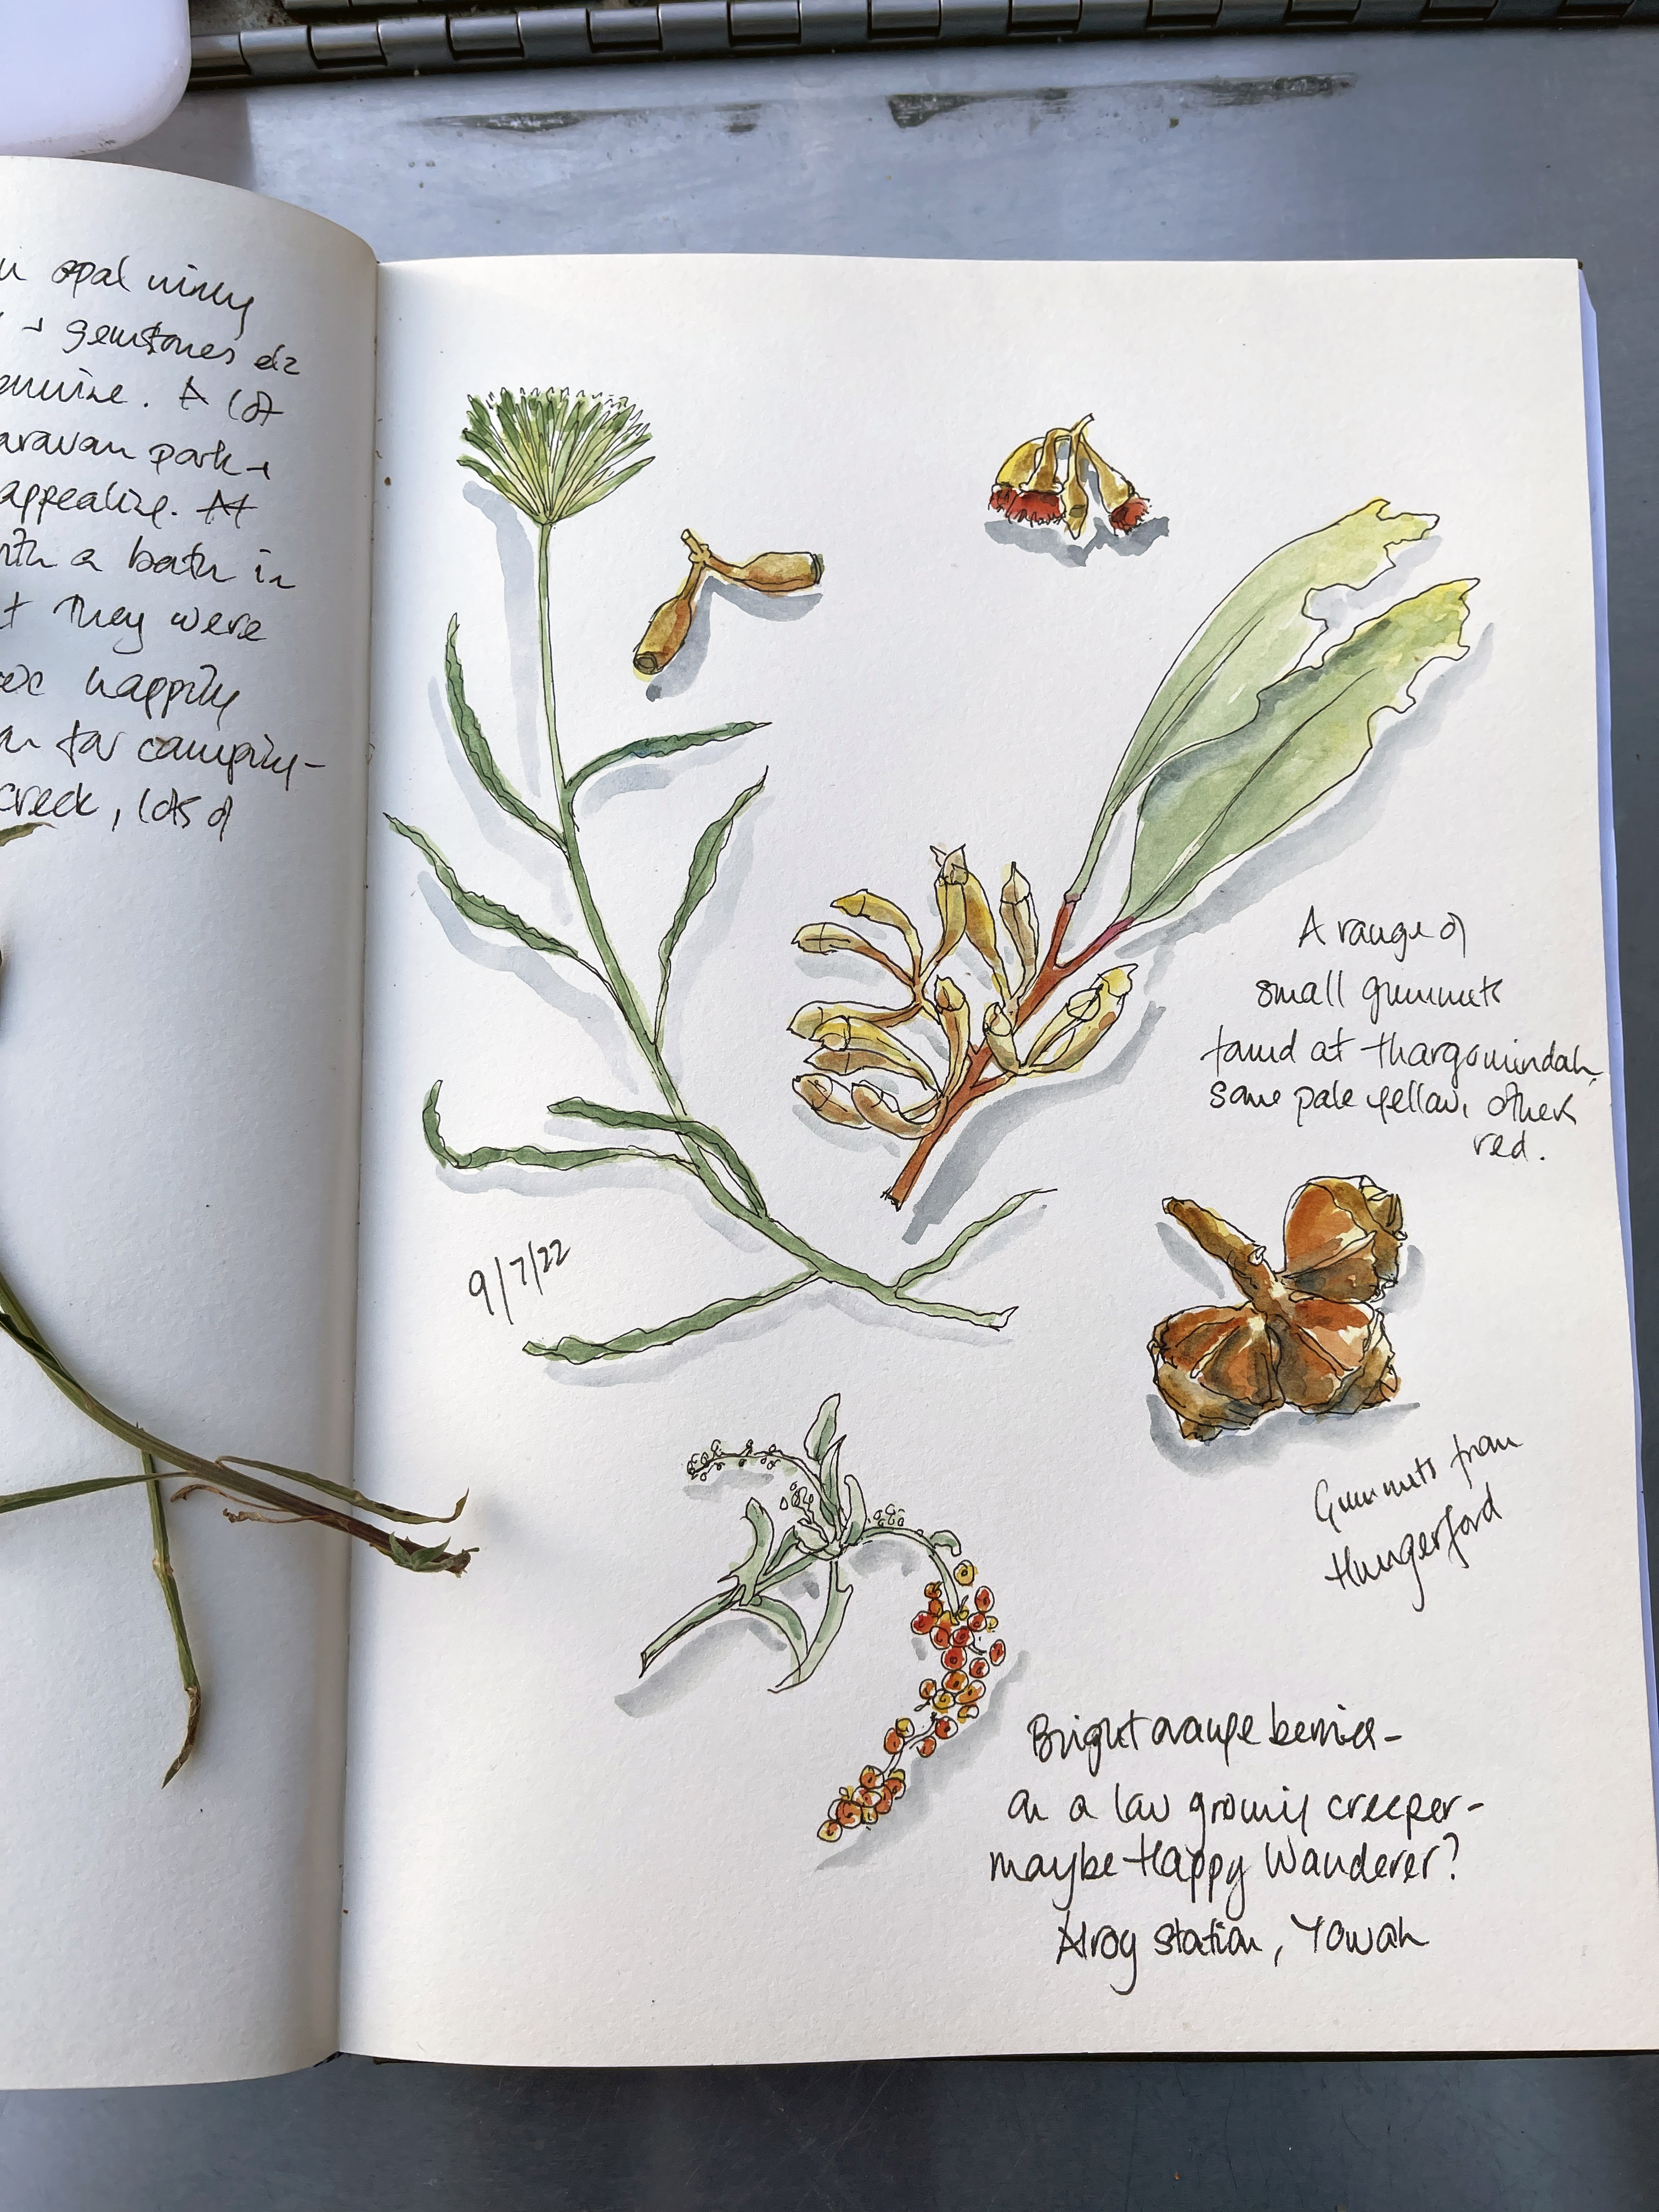 opal mining
gemstones etc
A lot
caravan park +
appealing. At
with a bath in
They were
happily
for camping -
creek, lots of
A range of
small gumnuts
found at Thargomindah,
some pale yellow, others
red.
9/7/22
Gumnuts from
Hungerford
Bright orange berries -
on a low growing creeper -
maybe Happy Wanderer?
Alroy station, Yowah